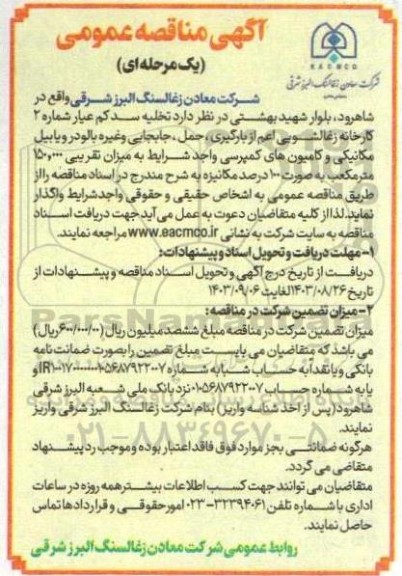 آگهی مناقصه عمومی
(یک مرحله ای)
EACMCO
شرکت معادن زغالسنگ البرز شرقی
شرکت معادن زغالسنگ البرز شرقی واقع در
شاهرود، بلوار شهید بهشتی در نظر دارد تخلیه سد کم عیار شماره ۲
کارخانه زغالشویی اعم از بارگیری، حمل، جابجایی وغیره با لودر و یا بیل
مکانیکی و کامیون های کمپرسی واجد شرایط به میزان تقریبی ۱۵۰,۰۰۰
مترمکعب به صورت ۱۰۰ درصد مکانیزه به شرح مندرج در اسناد مناقصه را از
طریق مناقصه عمومی به اشخاص حقیقی و حقوقی واجدشرایط واگذار
نماید. لذا از کلیه متقاضیان دعوت به عمل می آید جهت دریافت اسناد
مناقصه به سایت شرکت به نشانی www.eacmco.ir مراجعه نمایند.
۱- مهلت دریافت و تحویل اسناد و پیشنهادات:
دریافت از تاریخ درج آگهی و تحویل اسناد مناقصه و پیشنهادات از
تاریخ ۱۴۰۳/۰۸/۲۶ لغایت ۱۴۰۳/۰۹/۰۶
۲- میزان تضمین شرکت در مناقصه:
میزان تضمین شرکت در مناقصه مبلغ ششصد میلیون ریال (۶۰۰/۰۰۰/۰۰۰ ریال)
می باشد که متقاضیان می بایست مبلغ تضمین را بصورت ضمانت نامه
بانکی و یا نقداً به حساب شبا به شماره
یا به شماره حساب ۰۱۰۵۶۸۷۹۲۲۰۰۷ نزد بانک ملی شعبه البرز شرقی
شاهرود (پس از اخذ شناسه واریز) بنام شرکت زغالسنگ البرز شرقی واریز
نمایند.
هرگونه ضمانتی بجز موارد فوق فاقد اعتبار بوده و موجب رد پیشنهاد
متقاضی می گردد.
متقاضیان می توانند جهت کسب اطلاعات بیشتر همه روزه در ساعات
اداری با شماره تلفن ۳۲۳۹۴۰۶۱-۰۲۳ امور حقوقی و قراردادها تماس
حاصل نمایند.
روابط عمومی شرکت معادن زغالسنگ البرز شرقی
ParsNamadData
۰۲۱-۸۸۳۴۹۶۷۰-۵